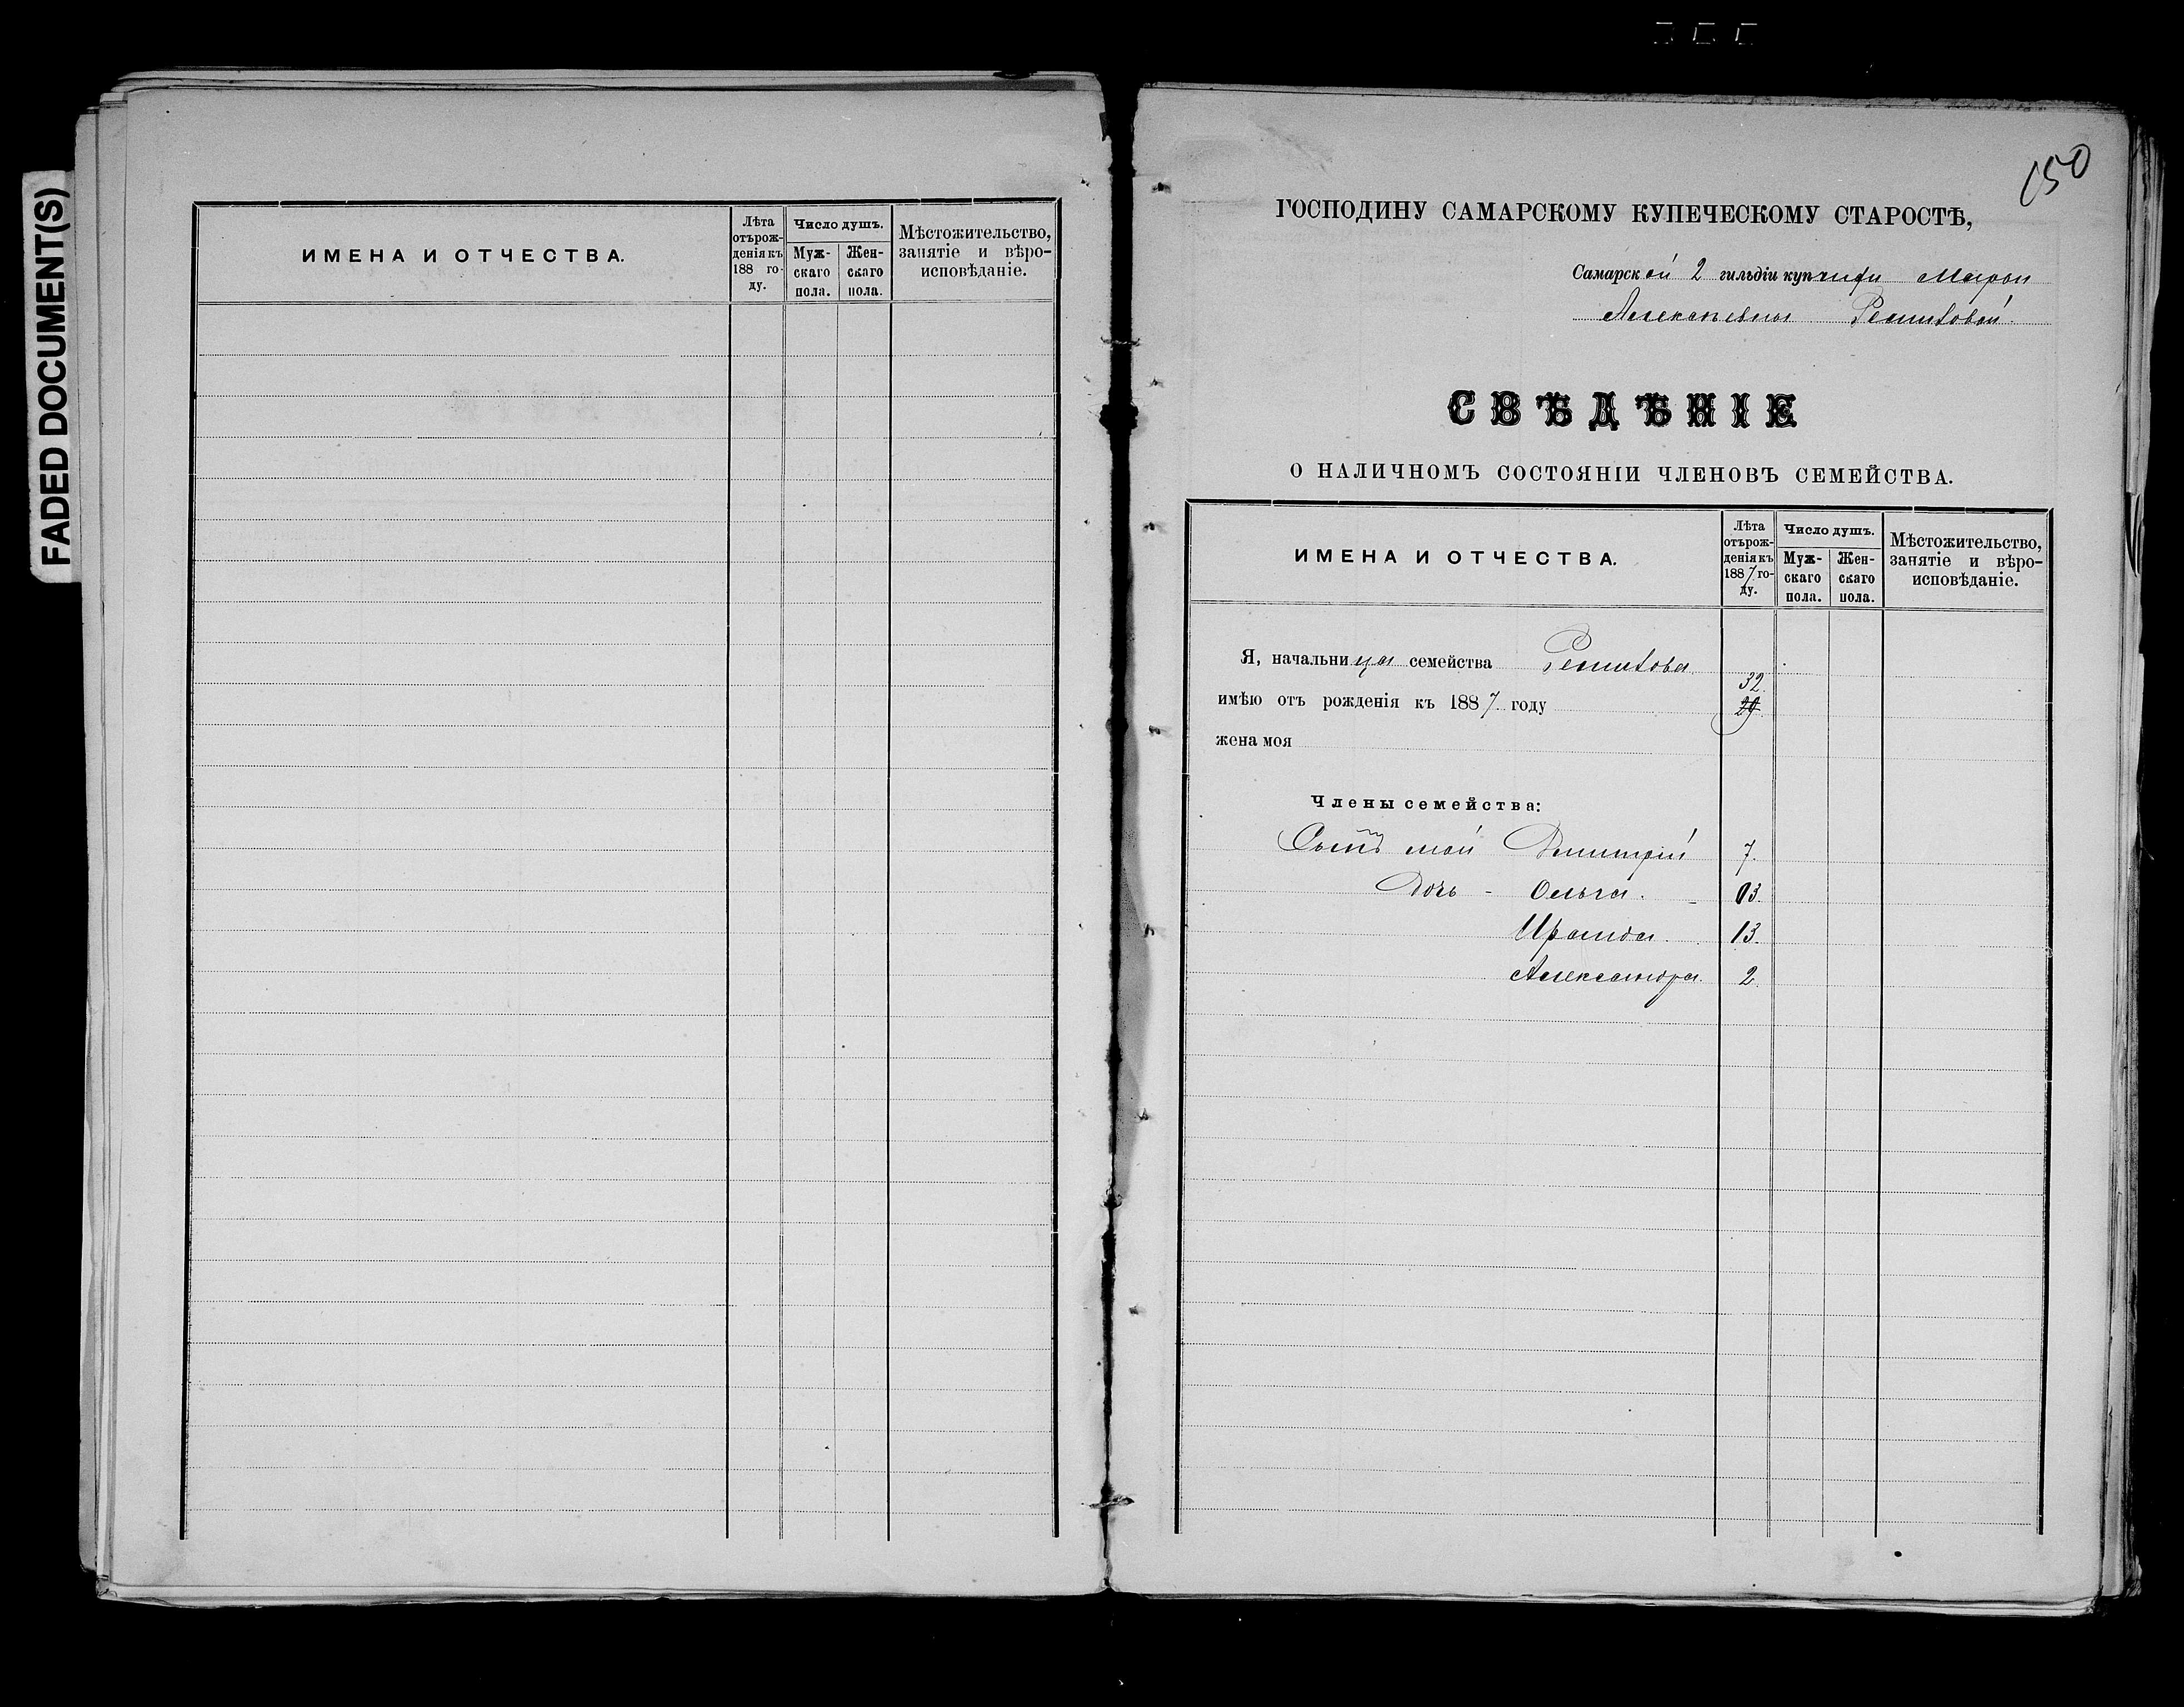 FADED DOCUMENT(S)
ИМЕНА И ОТЧЕСТВА.
Лѣта
отърож-
денія къ
188 го-
ду.
Число душъ.
Муж-
скаго
пола.
Жен-
скаго
пола.
Мѣстожительство,
занятіе и вѣро-
исповѣданіе.
150
ГОСПОДИНУ САМАРСКОМУ КУПЕЧЕСКОМУ СТАРОСТѢ,
Самарской 2 гильдіи купчихи Марьи
СВѢДѢНІЕ
О НАЛИЧНОМЪ СОСТОЯНІИ ЧЛЕНОВЪ СЕМЕЙСТВА.
ИМЕНА И ОТЧЕСТВА.
Лѣта
отърож-
денія къ
1887 го-
ду.
Число душъ.
Муж-
скаго
пола.
Жен-
скаго
пола.
Мѣстожительство,
занятіе и вѣро-
исповѣданіе.
Я, начальница семейства
32.
имѣю отъ рожденія къ 1887 году 29.
жена моя
Члены семейства:
Сынъ мой Дмитрій 7.
Дочь - Ольга. - 13.
Ираида. 13.
Александра. 2.